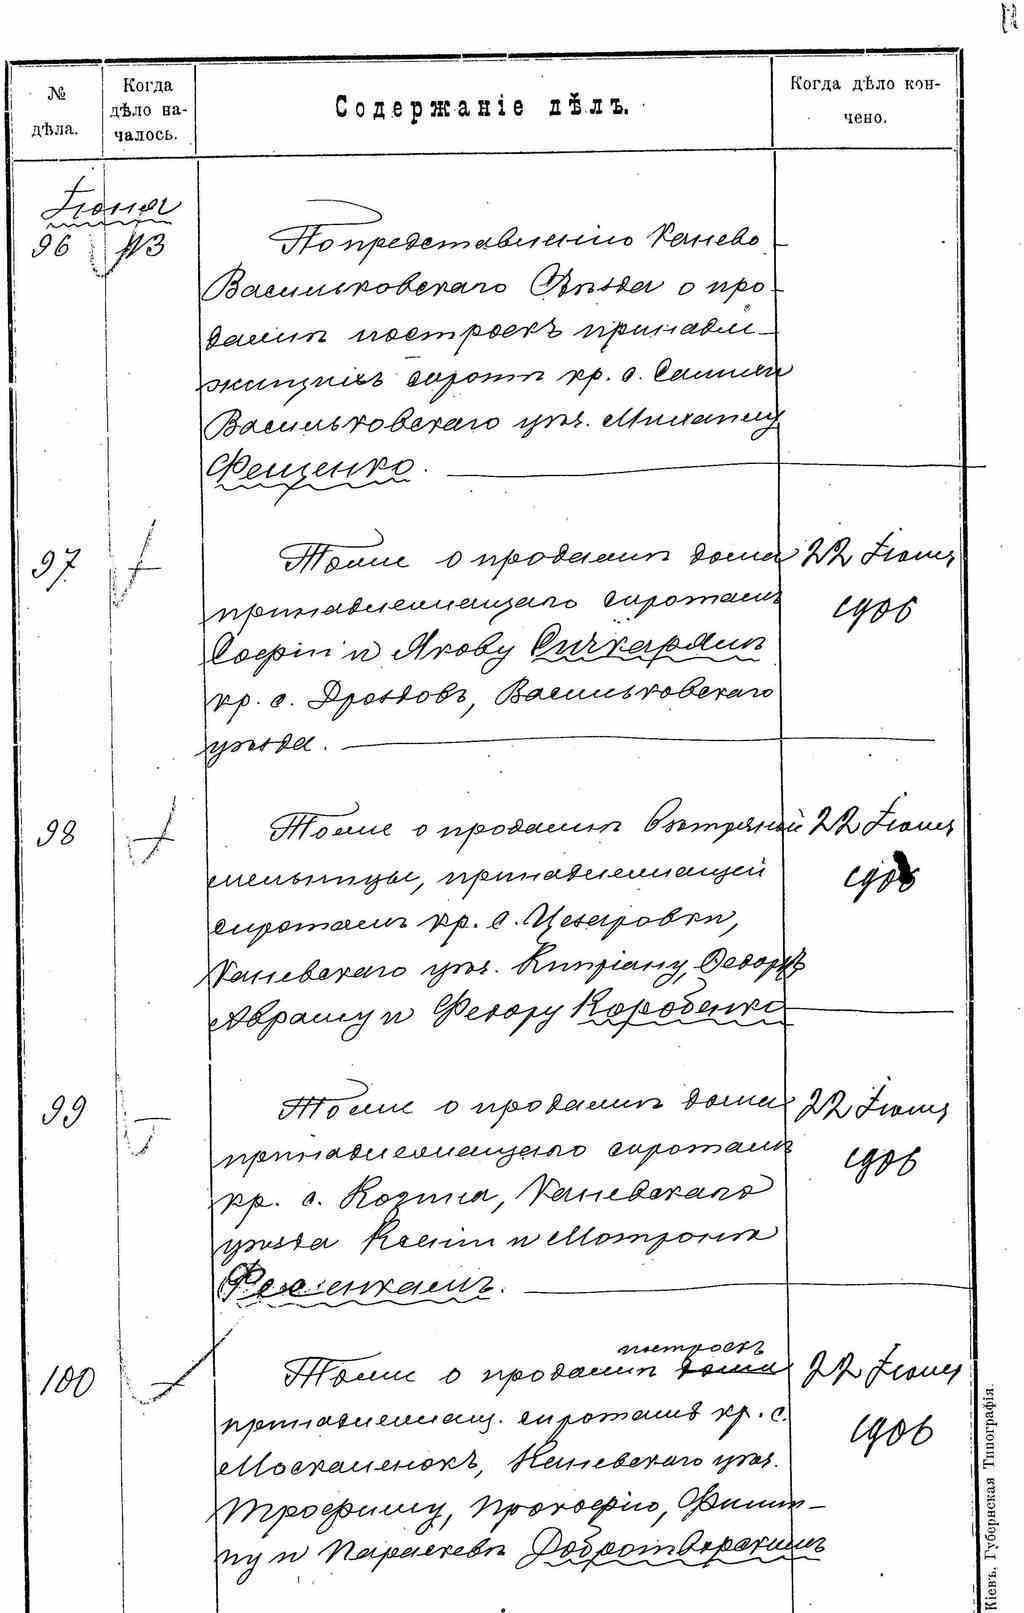 № дѣла.
Когда дѣло началось.
Содержаніе дѣлъ.
Когда дѣло кончено.
Іюня
96 13
По представленію Канево-
Васильковскаго Съѣзда о про-
дажѣ построекъ принадле-
жащихъ сиротѣ кр. с.
Васильковскаго уѣз. Михаилу
Фещенко.
97
Тоже о продажѣ дома 22 Іюня
принадлежащаго сиротамъ 1906
Софіи и Якову Сичкарямъ
кр. с. Дроздовъ, Васильковскаго
уѣзда.
98
Тоже о продажѣ вѣтряной 22 Іюня
мельницы, принадлежащей 1906
сиротамъ кр. с. Цезаровки,
Каневскаго уѣз. Кипріану,
Авраму и Федору Коробенко
99
Тоже о продажѣ дома 22 Іюня
принадлежащаго сиротамъ 1906
кр. с. Козина, Каневскаго
уѣзда Ксеніи и Мотронѣ
100
построекъ
Тоже о продажѣ дома 22 Іюня
принадлежащ. сиротамъ кр. с. 1906
Москаленокъ, Каневскаго уѣз.
Трофиму, Прокофію, Филип-
пу и Параскевѣ Добротворскимъ
Кіевъ. Губернская Типографія.